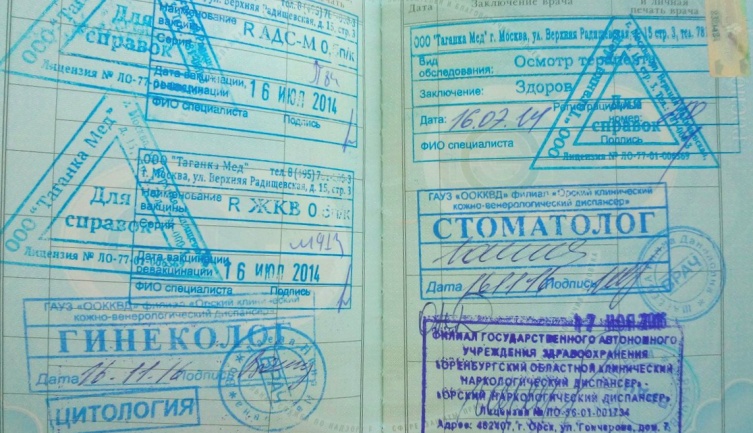 Наименование вакцины R АДС-М 0,5 п/к
Серия
Дата вакцинации, ревакцинации 16 ИЮЛ 2014
ФИО специалиста Подпись
ООО "Таганка Мед"
Для справок
Лицензия № ЛО-77-
ООО "Таганка Мед" тел. 8(495)7
г. Москва, ул. Верхняя Радищевская, д. 15, стр. 3
Наименование вакцины R ЖКВ 0,5 п/к
Серия
Дата вакцинации ревакцинации 16 ИЮЛ 2014
ФИО специалиста Подпись
ООО "Таганка Мед"
Для справок
Лицензия № ЛО-77-
ГАУЗ «ООККВД» филиал «Орский клинический
кожно-венерологический диспансер»
ГИНЕКОЛОГ
Дата 16.11.16 Подпись
ВРАЧ
ЦИТОЛОГИЯ
Дата Заключение врача и личная
печать врача
ООО "Таганка Мед" г. Москва, ул. Верхняя Радищевская, д. 15 стр. 3, тел.
Вид обследования: Осмотр терапевт
Заключение: Здоров
Дата: 16.07.14 Регистрационный номер:
ФИО специалиста Подпись
ООО "Таганка Мед"
Для справок
Лицензия № ЛО-77-01-
ГАУЗ «ООККВД» филиал «Орский клинический
кожно-венерологический диспансер»
СТОМАТОЛОГ
Дата 16.11.16 Подпись
ВРАЧ
17 НОЯ 2016
ФИЛИАЛ ГОСУДАРСТВЕННОГО АВТОНОМНОГО
УЧРЕЖДЕНИЯ ЗДРАВООХРАНЕНИЯ
«ОРЕНБУРГСКИЙ ОБЛАСТНОЙ КЛИНИЧЕСКИЙ
НАРКОЛОГИЧЕСКИЙ ДИСПАНСЕР» -
«ОРСКИЙ НАРКОЛОГИЧЕСКИЙ ДИСПАНСЕР»
Лицензия № ЛО-56-01-001234
Адрес: 462407, г. Орск, ул. Гончарова, дом.